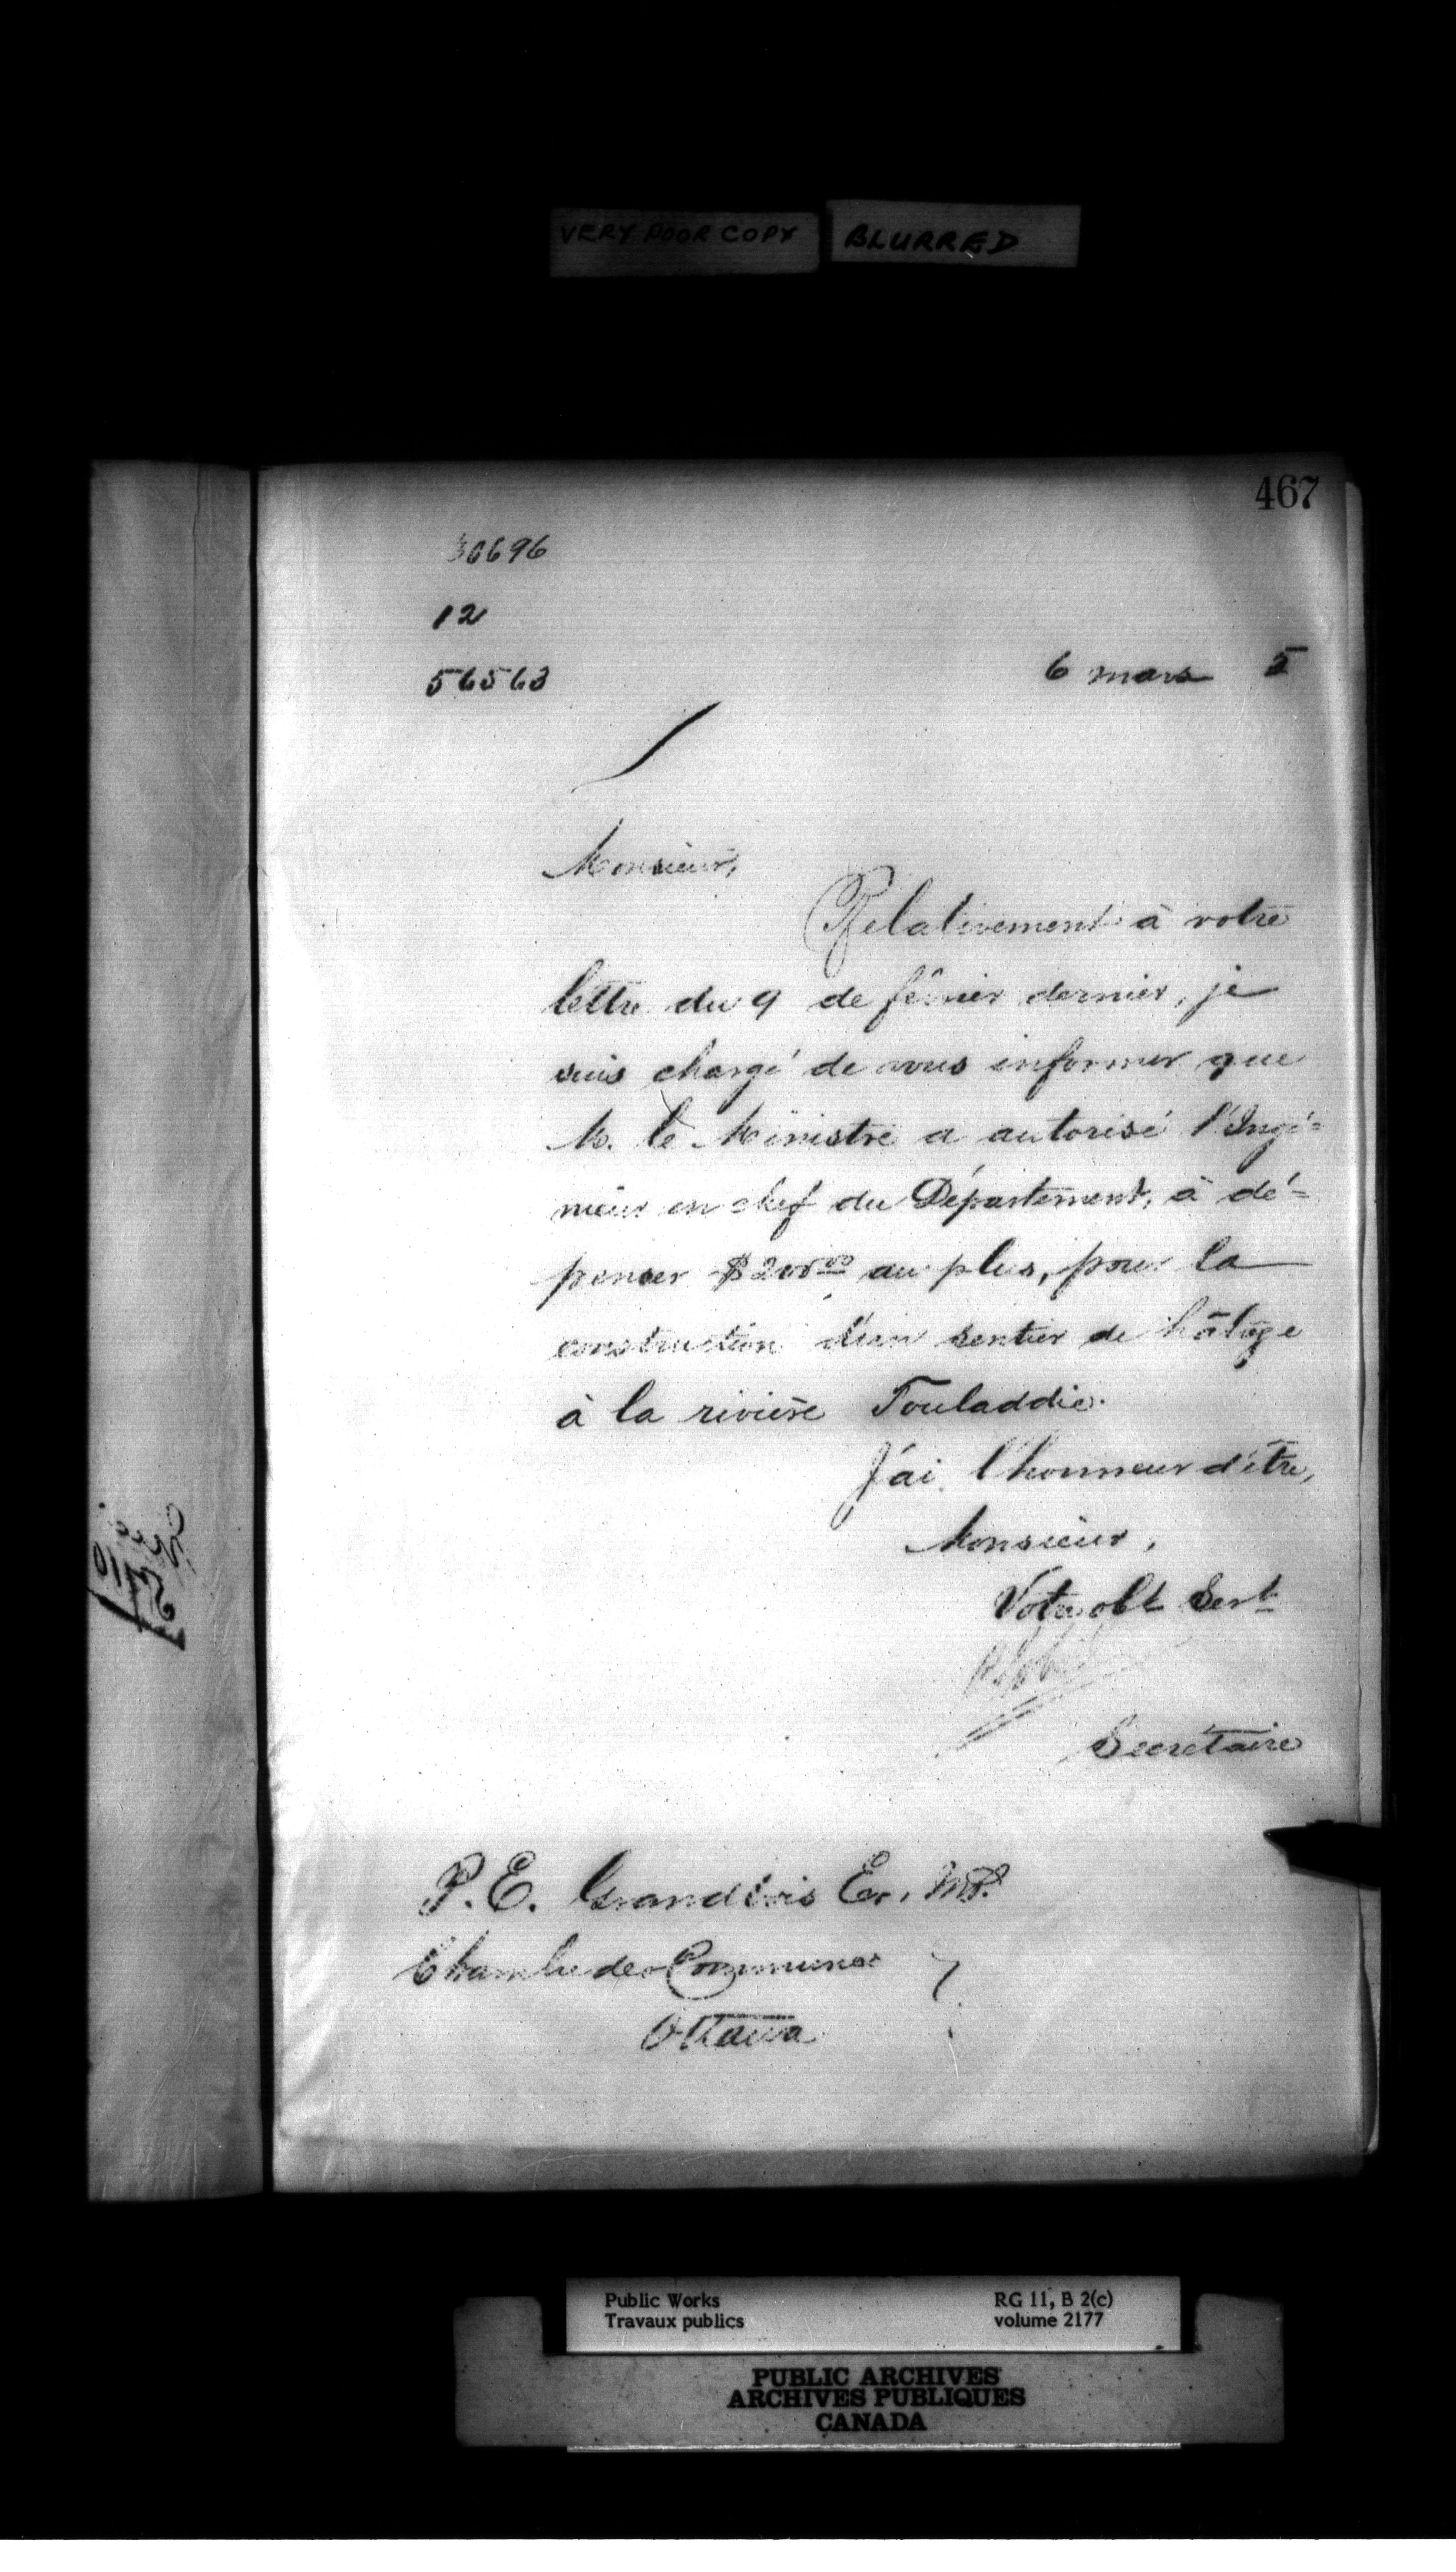 VERY POOR COPY BLURRED
467
30696
12
56563
6 mars 5
Monsieur,
Relativement à votre
lettre du 9 de février dernier, je
suis chargé de vous informer que
M. le Ministre a autorisé l'Ingé=
nieur en chef du Département, à dé=
penser $200.00 au plus, pour la
construction d'un sentier de hâlage
à la rivière Touladdie.
J'ai l'honneur d'être,
Monsieur,
Votre obt Sert
Secrétaire
P. E. Grandbois Er. M.P.
Chambre des Communes
Ottawa
Public Works RG 11, B 2(c)
Travaux publics volume 2177
PUBLIC ARCHIVES
ARCHIVES PUBLIQUES
CANADA